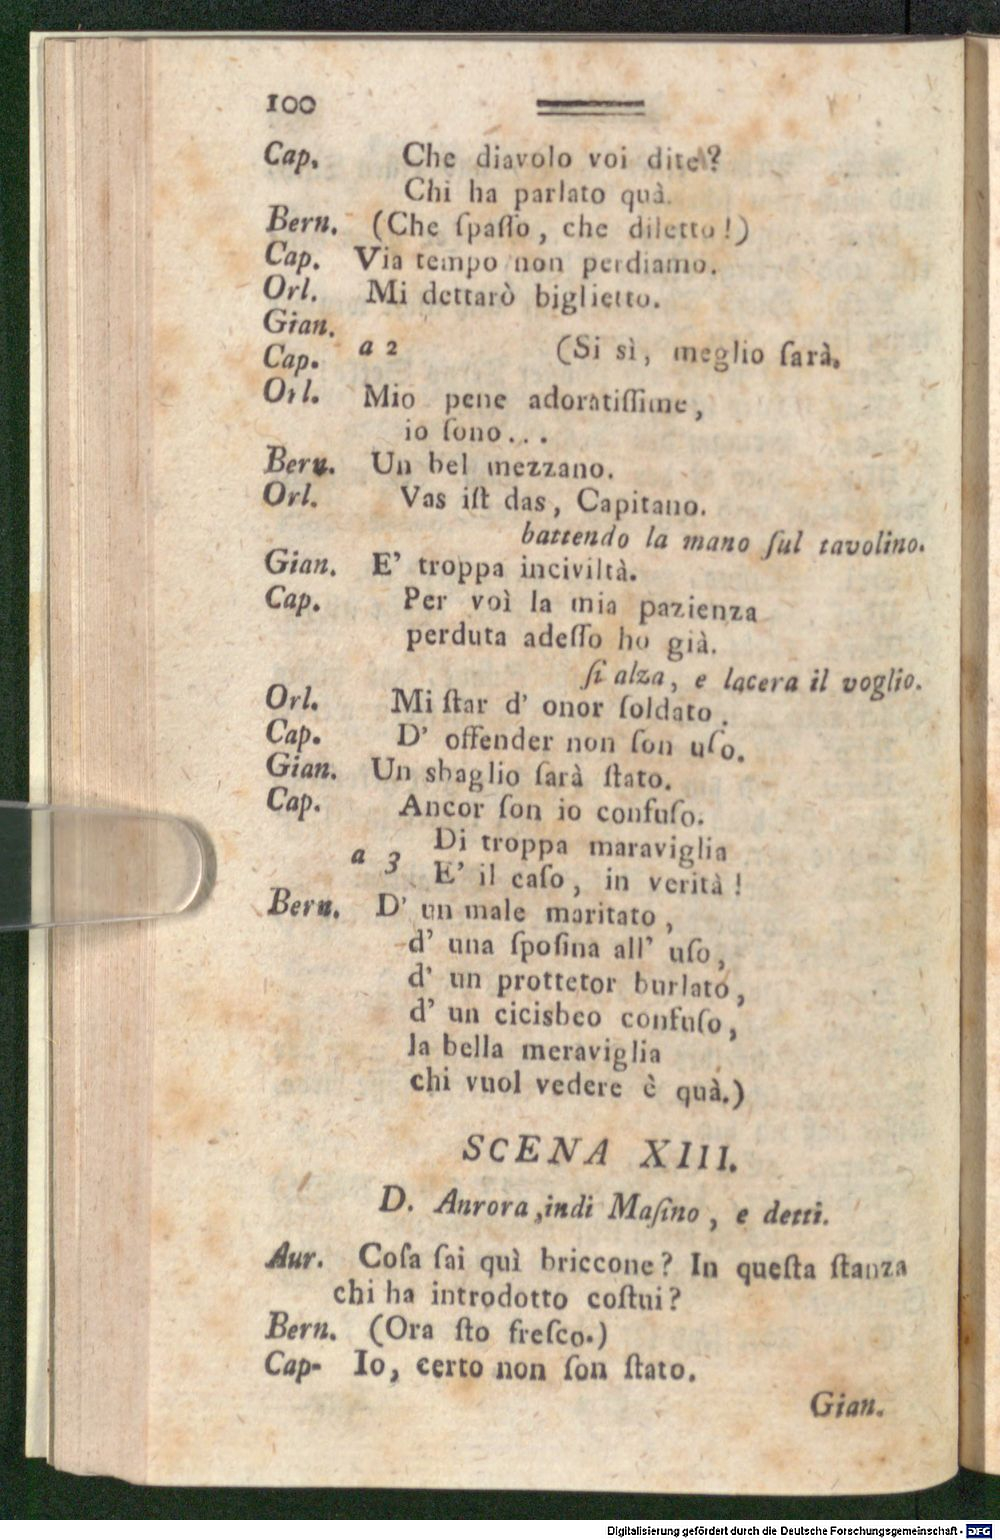 100
Cap. Che diavolo voi dite?
Chi ha parlato quà.
Bern. (Che ſpaſſo, che diletto!)
Cap. Via tempo non perdiamo.
Orl. Mi dettarò biglietto.
Gian.
Cap. a 2 (Si sì, meglio ſarà.
Orl. Mio pene adoratiſſime,
io ſono...
Bern. Un bel mezzano.
Orl. Vas iſt das, Capitano.
battendo la mano ſul tavolino.
Gian. E' troppa inciviltà.
Cap. Per voì la mia pazienza
perduta adeſſo ho già.
ſi alza, e lacera il voglio.
Orl. Mi ſtar d' onor ſoldato.
Cap. D' offender non ſon uſo.
Gian. Un sbaglio ſarà ſtato.
Cap. Ancor ſon io confuſo.
Di troppa maraviglia
a 3
E' il caſo, in verità!
Bern. D' un male maritato,
d' una ſpoſina all' uſo,
d' un prottetor burlato,
d' un cicisbeo confuſo,
la bella meraviglia
chi vuol vedere è quà.)
SCENA XIII.
D. Anrora, indi Maſino, e detti.
Aur. Coſa ſai quì briccone? In queſta ſtanza
chi ha introdotto coſtui?
Bern. (Ora ſto freſco.)
Cap- Io, certo non ſon ſtato.
Gian.
Digitalisierung gefördert durch die Deutsche Forschungsgemeinschaft - DFG